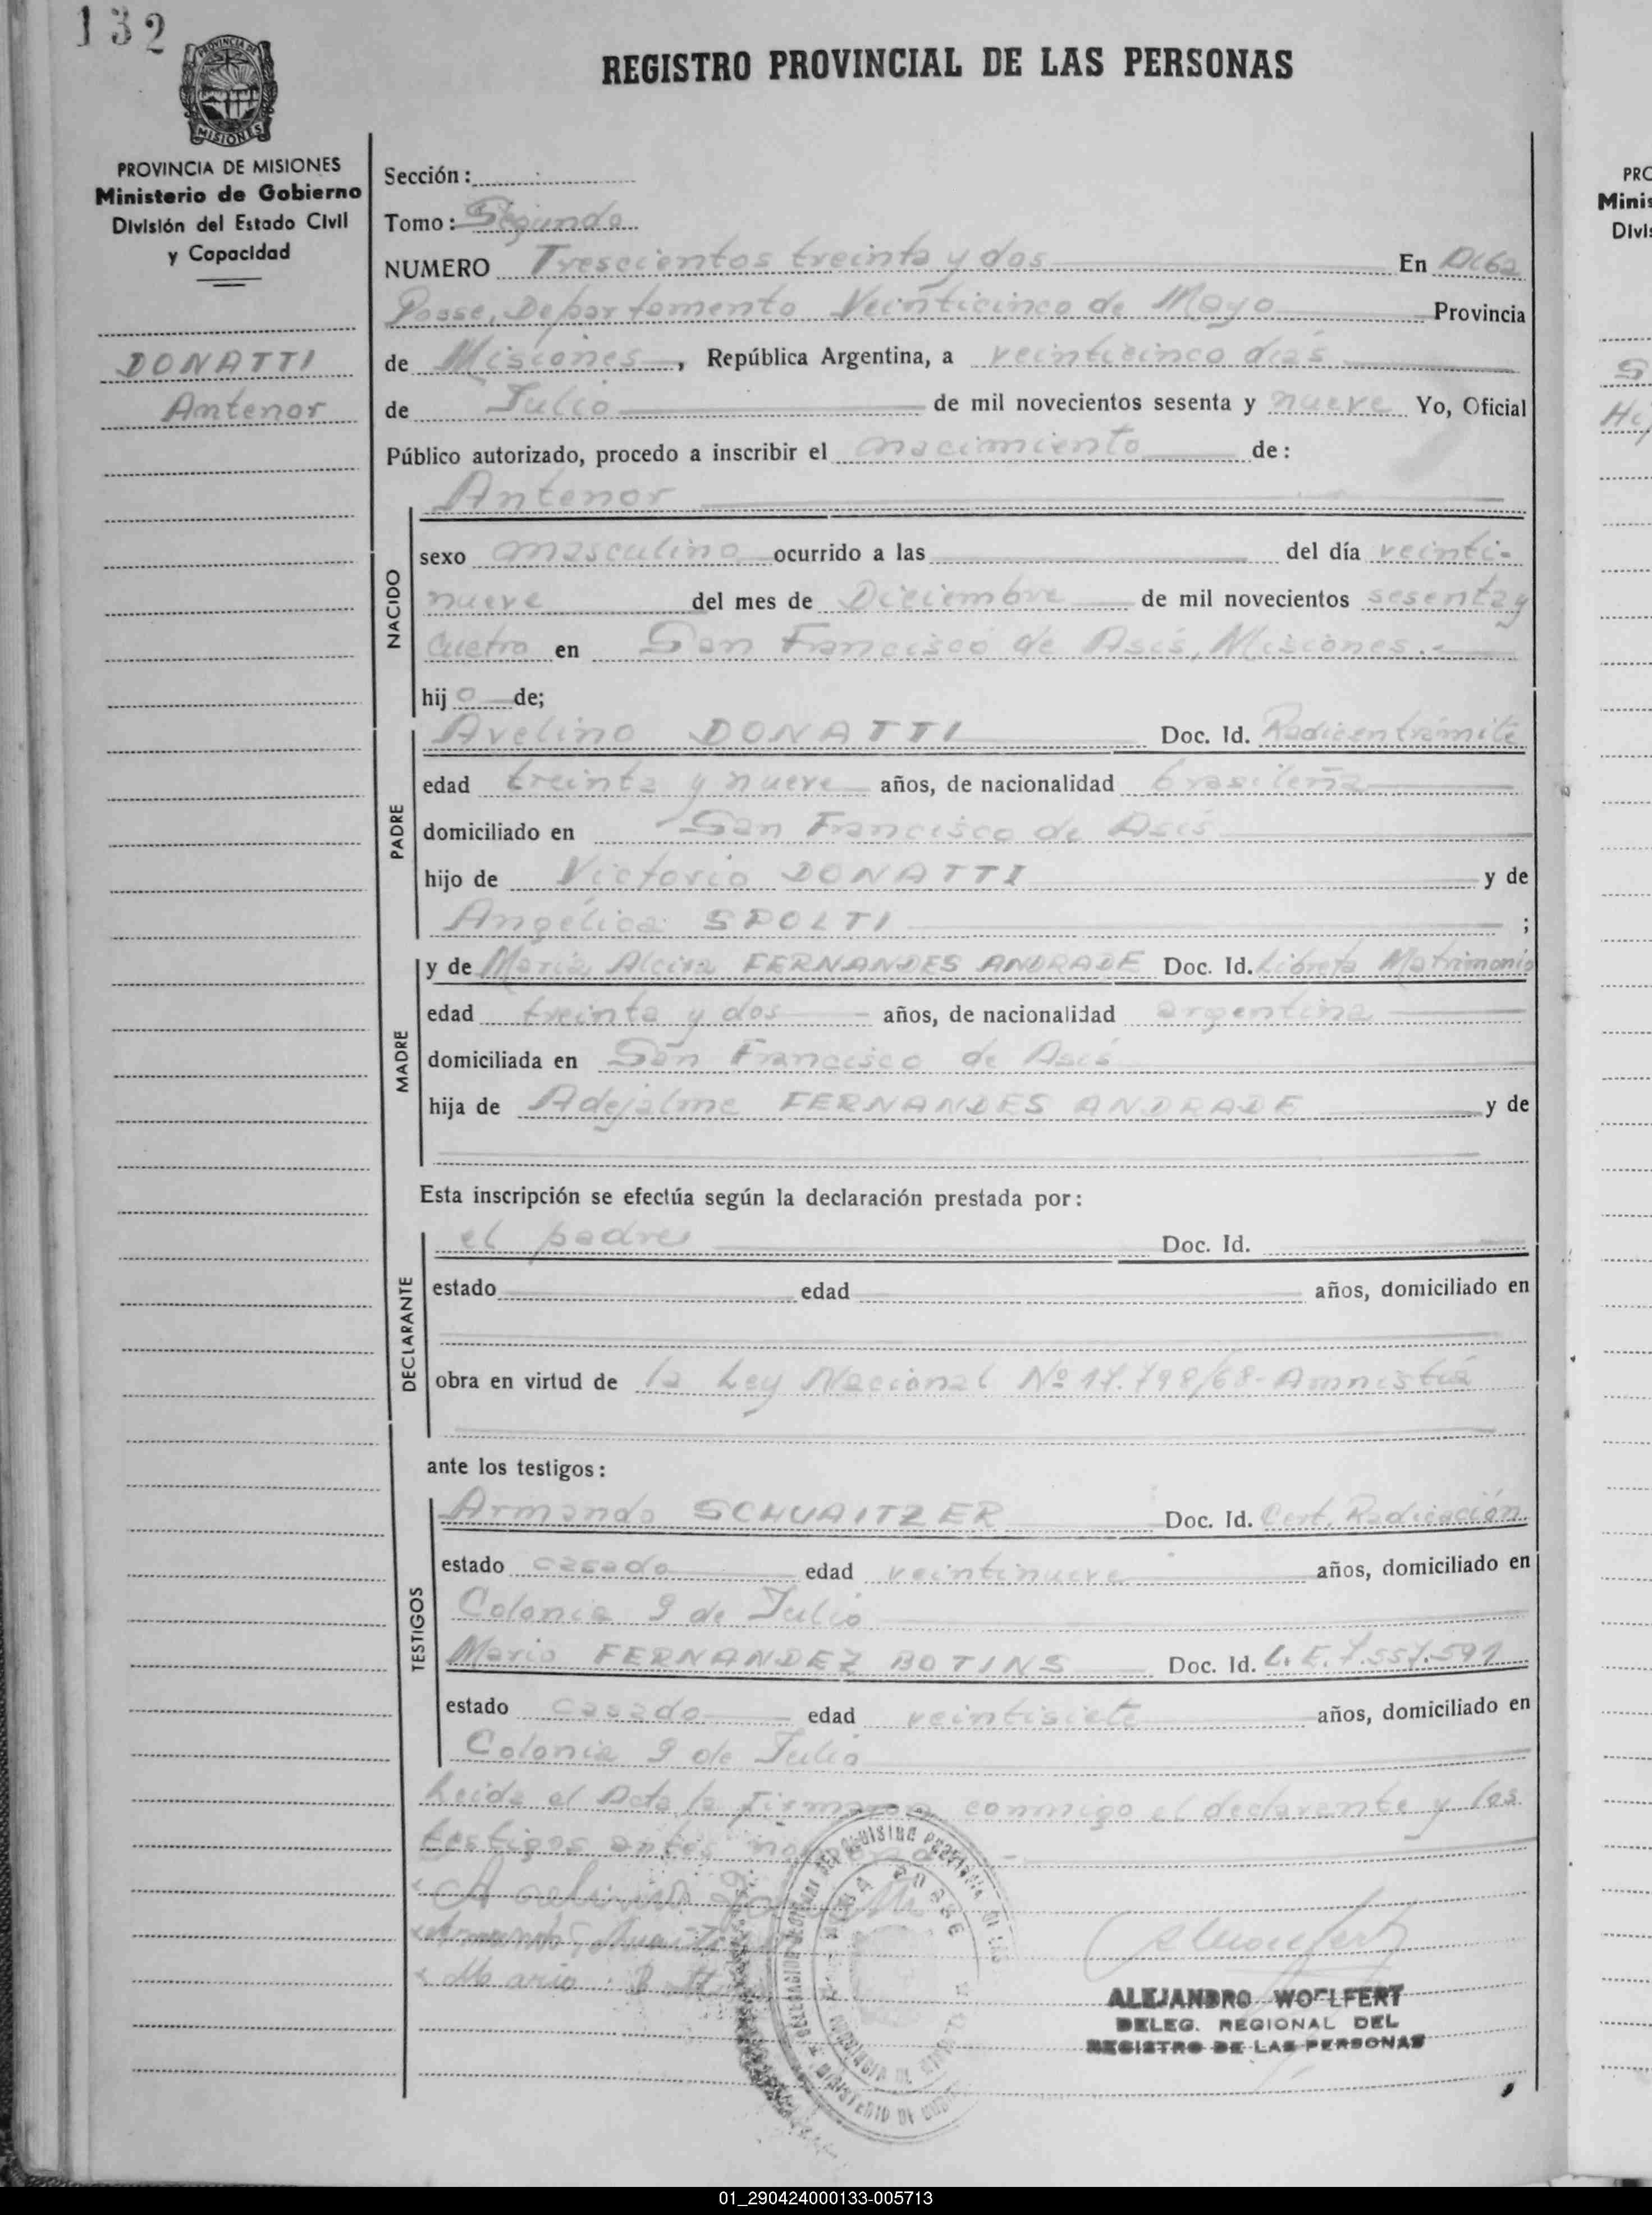 132
REGISTRO PROVINCIAL DE LAS PERSONAS
PROVINCIA DE
MISIONES
PROVINCIA DE MISIONES
Ministerio de Gobierno
División del Estado Civil
y Capacidad
DONATTI
Antenor
Sección:
Tomo: Segundo
NUMERO Trescientos treinta y dos En Alba
Posse, Departamento Veinticinco de Mayo Provincia
de Misiones, República Argentina, a veinticinco días
de Julio de mil novecientos sesenta y nueve Yo, Oficial
Público autorizado, procedo a inscribir el nacimiento de:
Antenor
NACIDO
sexo masculino ocurrido a las del día veinti-
nueve del mes de Diciembre de mil novecientos sesenta y
cuatro en San Francisco de Asís, Misiones.-
hijo de;
PADRE
Avelino DONATTI Doc. Id. Radic en trámite
edad treinta y nueve años, de nacionalidad brasileña
domiciliado en San Francisco de Asís
hijo de Victorio DONATTI y de
Angélica SPOLTI ;
MADRE
y de María Alcira FERNANDES ANDRADE Doc. Id. Libreta Matrimonio
edad treinta y dos años, de nacionalidad argentina
domiciliada en San Francisco de Asís
hija de Adejalme FERNANDES ANDRADE y de
Esta inscripción se efectúa según la declaración prestada por:
DECLARANTE
el padre Doc. Id.
estado edad años, domiciliado en
obra en virtud de la Ley Nacional Nº 17.798/68-Amnistía
ante los testigos:
TESTIGOS
Armando SCHUAITZER Doc. Id. Cert. Radicación
estado casado edad veintinueve años, domiciliado en
Colonia 9 de Julio
Mario FERNANDEZ BOTINS Doc. Id. L.E.7.557.591
estado casado edad veintisiete años, domiciliado en
Colonia 9 de Julio
Leida el Acta la firmaron conmigo el declarante y los
testigos antes
Avelino
Armando
Mario
ALBA POSSE
ALEJANDRO WOLFERT
DELEG. REGIONAL DEL
REGISTRO DE LAS PERSONAS
PRO
Minis
Divis
01_290424000133-005713